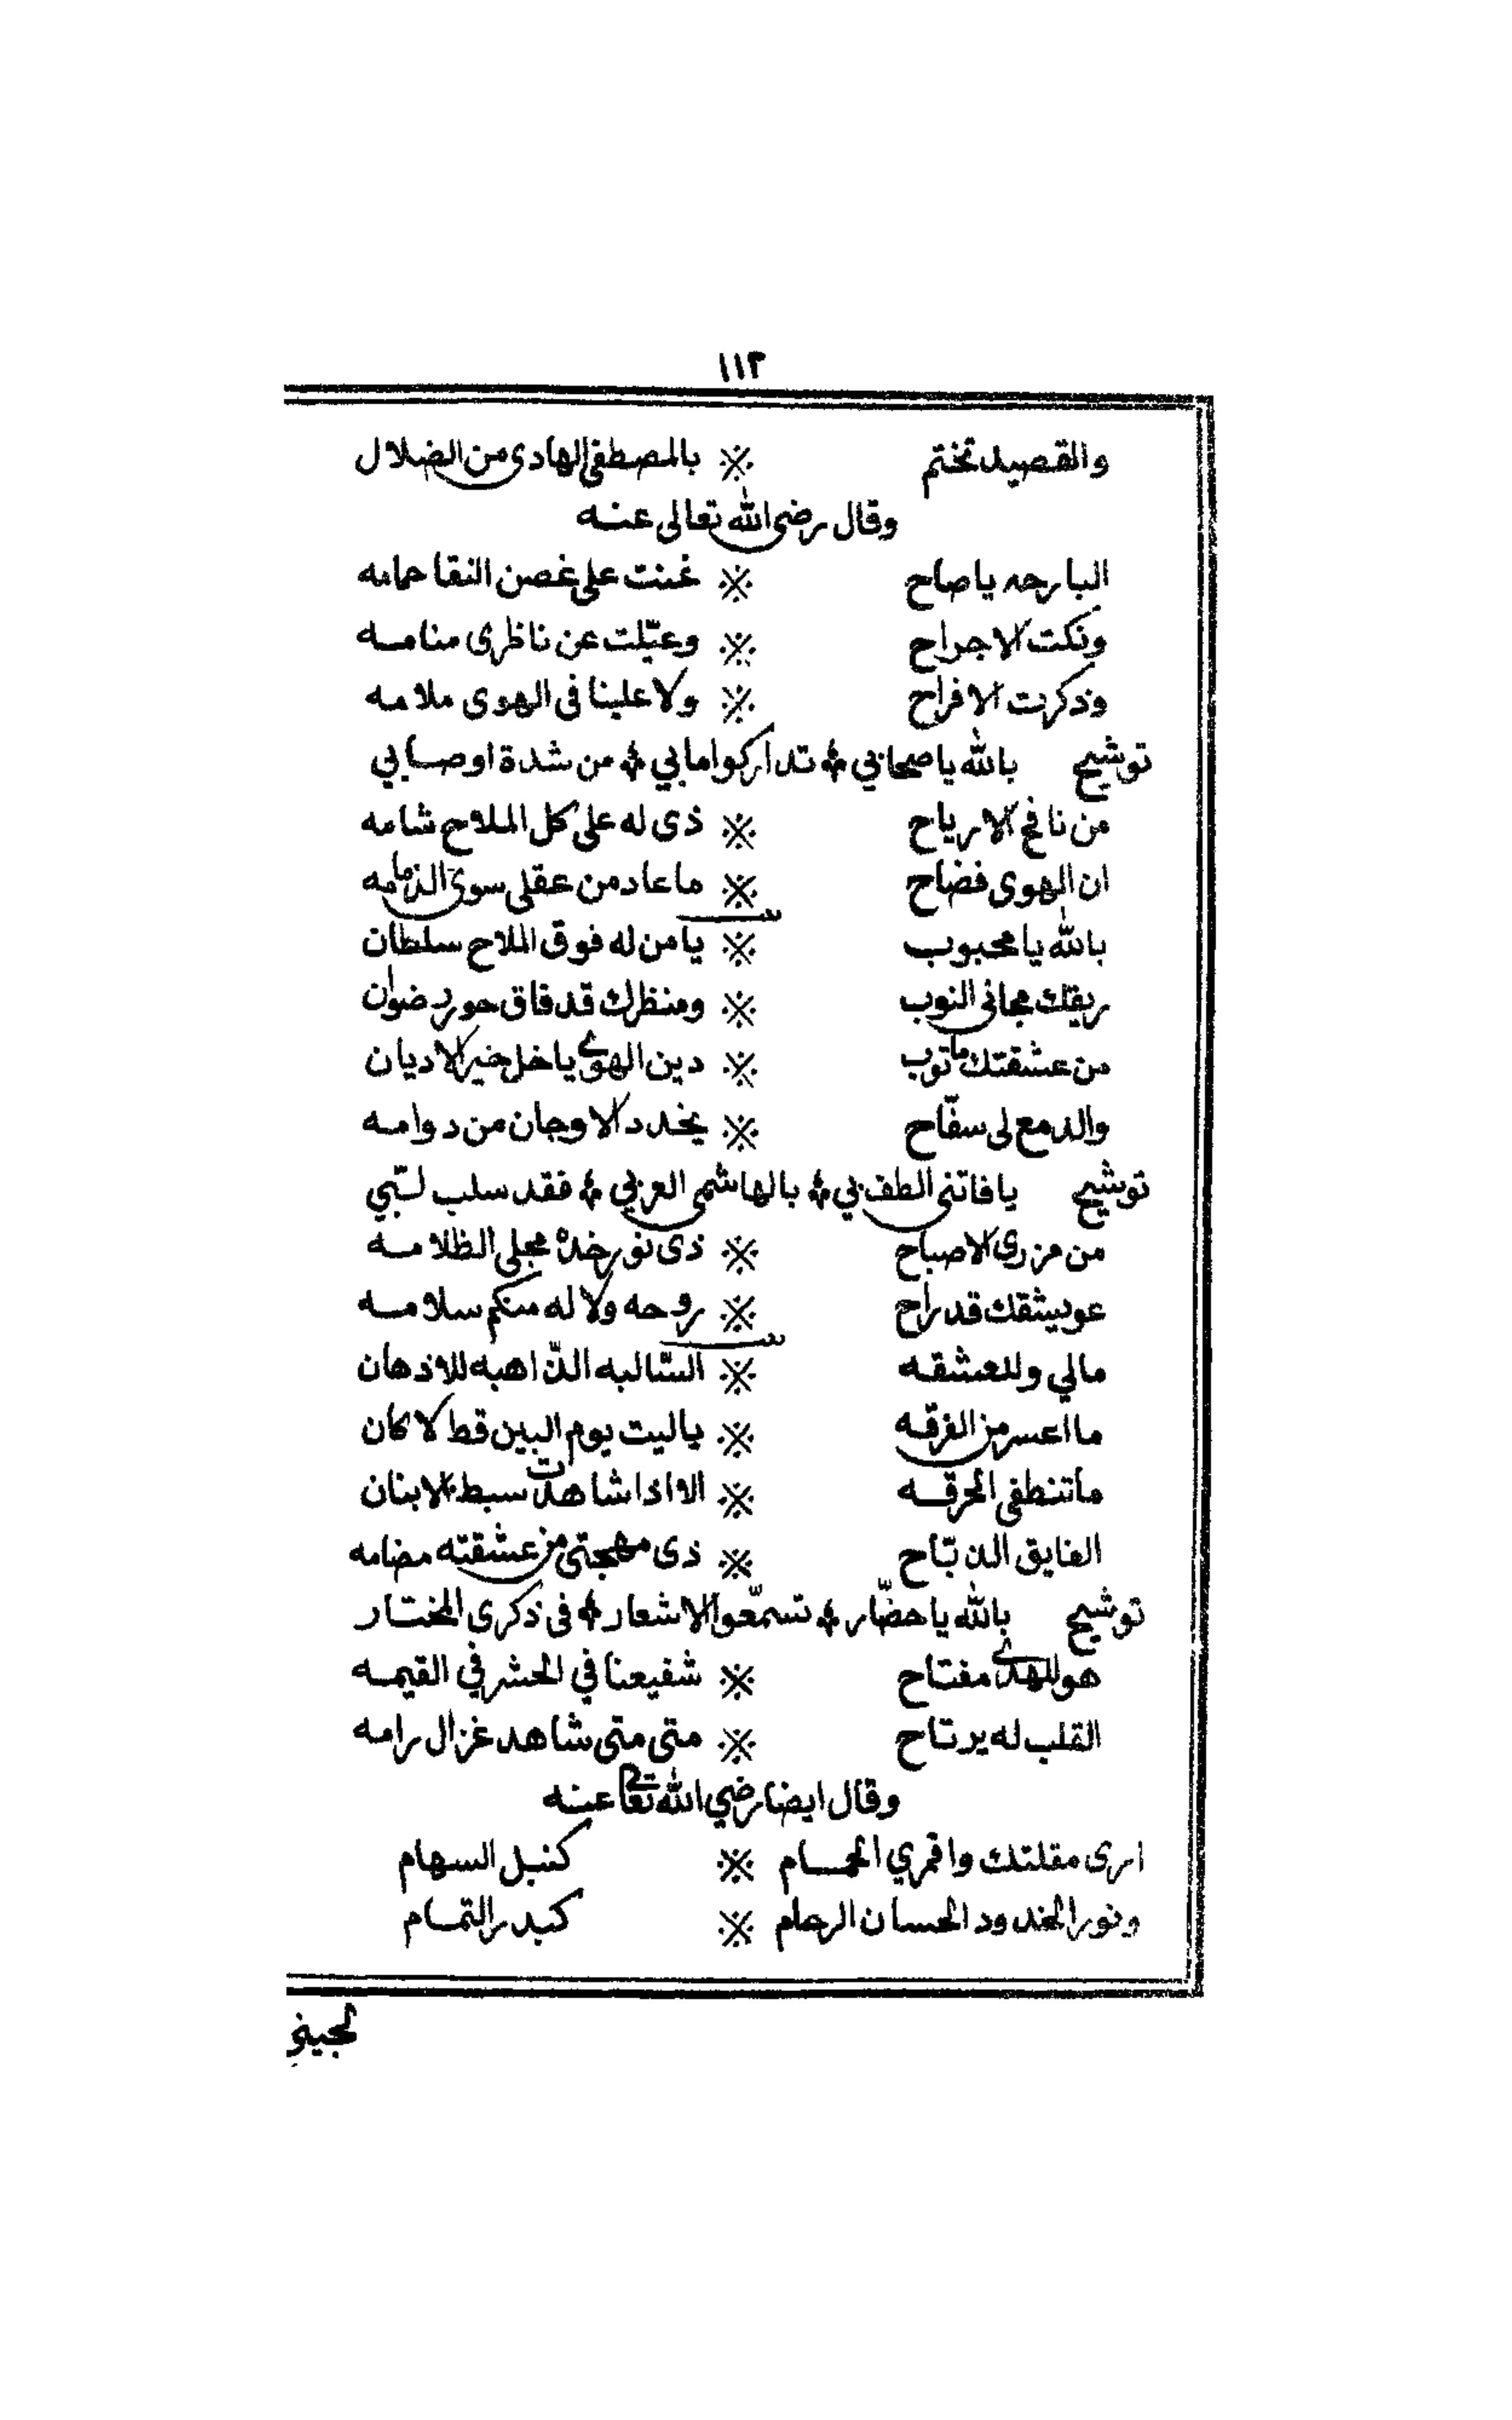 ١١٢
والقصيد تختم ※ بالمصطفى الهادى من الضلال
وقال رضى الله تعالى عنه
البارحه ياصاح ※ غنت على غصن النقا حمامه
ونكت الاجراح ※ وعيّلت عن ناظرى منامه
وذكرت الافراح ※ ولا علينا فى الهوى ملامه
توشيح بالله ياصحابي ⁂ تداركوا مابي ⁂ من شدة اوصابي
من نافح الارياح ※ ذى له على كل الملاح شامه
ان الهوى فضاح ※ ما عاد من عقلى سوى الذمامه
بالله يا محبوب ※ يا من له فوق الملاح سلطان
ريقك مجانى النوب ※ ومنظرك قد فاق حور رضوان
من عشقتك ماتوب ※ دين الهوى ياخل خير الاديان
والدمع لى سفّاح ※ يخدد الاوجان من دوامه
توشيح يافاتنى الطف بي ⁂ بالهاشمى العربي ⁂ فقد سلب لبّي
من مزرى الاصباح ※ ذى نور خده مجلى الظلامه
عويشقك قد راح ※ روحه ولا له منكم سلامه
مالي وللعشقه ※ السّالبه الذّاهبه للاذهان
ما اعسر من الفرقه ※ ياليت يوم البين قط لا كان
ماتنطفى الحرقه ※ الا اذا شاهدت سبط الابنان
الفايق الذبّاح ※ ذى مهجتى من عشقته مضامه
توشيح بالله ياحضّار ⁂ تسمّعوا الاشعار ⁂ فى ذكرى المختار
هو للهدى مفتاح ※ شفيعنا في الحشر في القيمه
القلب له يرتاح ※ متى متى شاهد غزال رامه
وقال ايضا رضي الله تعا عنه
ارى مقلتك واقمري الحمام ※ كنبل السهام
ونور الخدود الحسان الرحام ※ كبدر التمام
لجيني